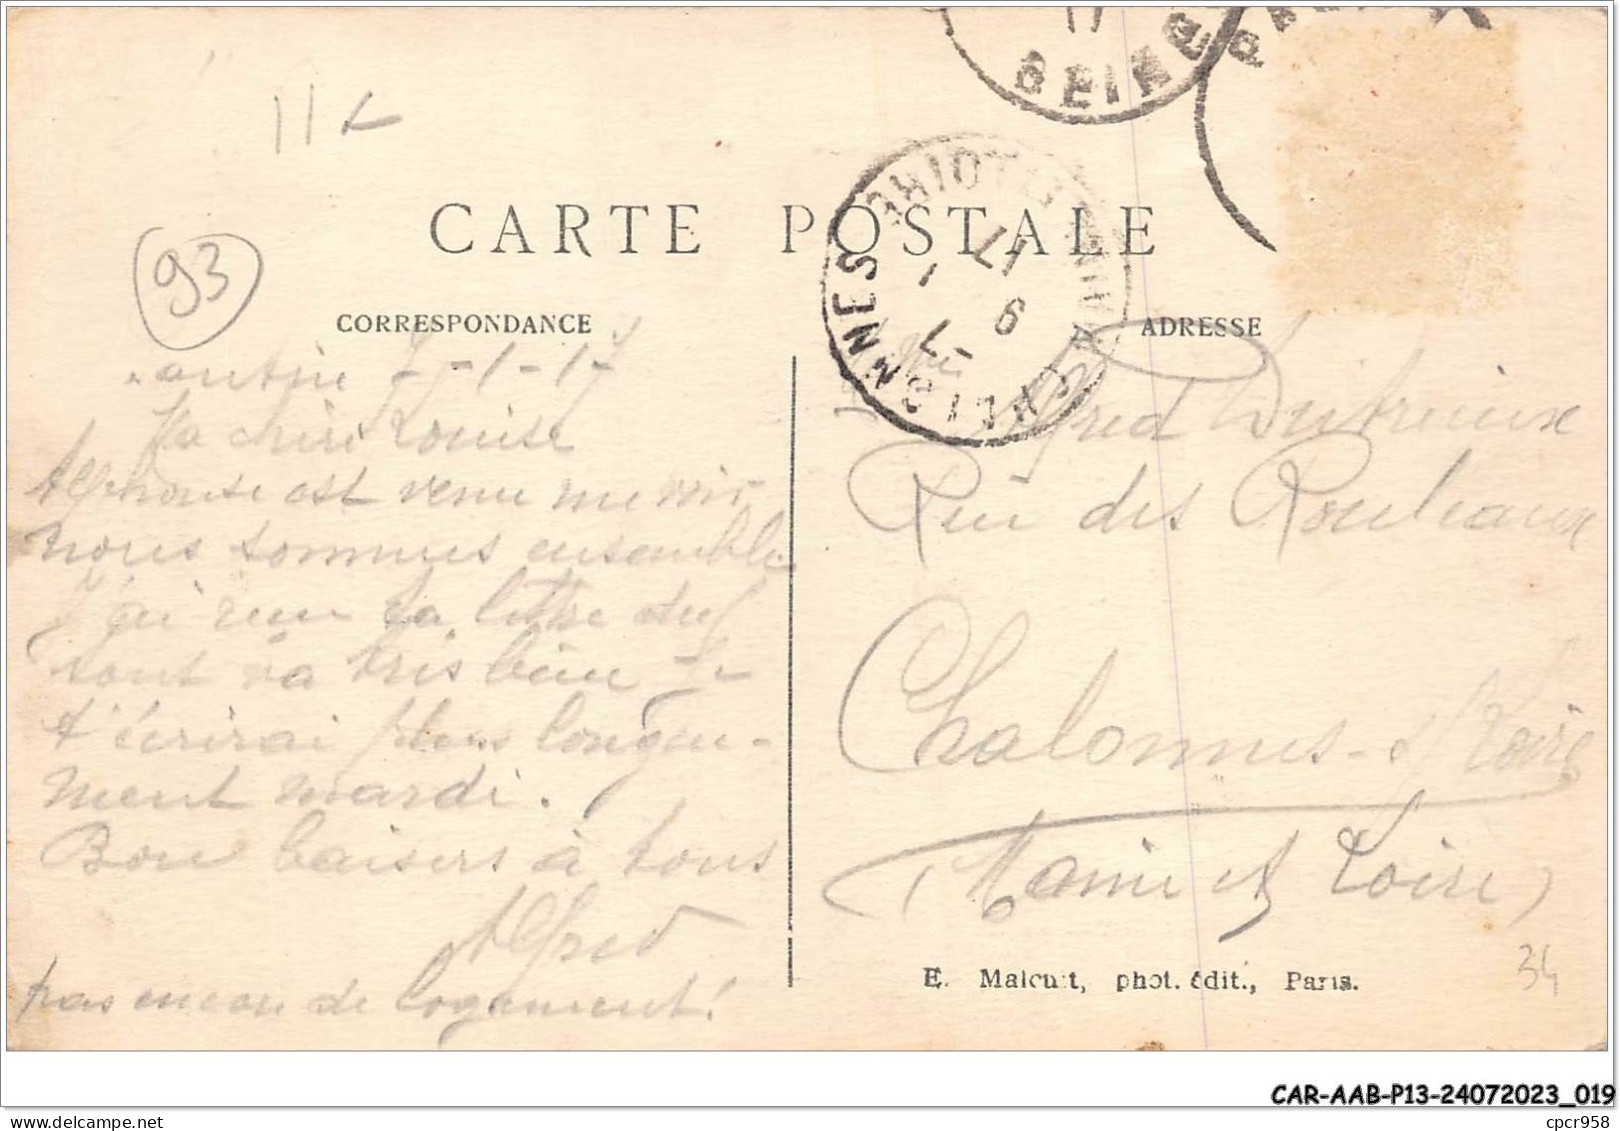 11
BEINE
SEINE
11 x
CARTE POSTALE
93
CHALONNES
17
9 - 1
CORRESPONDANCE
ADRESSE
Pantin 7-1-17
Ma chère Louise
Alphonse est venu me voir
nous sommes ensemble
J'ai reçu ta lettre
tout va très bien Je
t'écrirai plus longue-
ment mardi.
Bons baisers à tous
Alfred
pas encore de logement!
Alfred Dutrieux
Rue des Pouleaux
Chalonnes-s/Loire
(Maine et Loire)
E. Malcuit, phot. édit., Paris.
34
CAR-AAB-P13-24072023_019
cpcr958